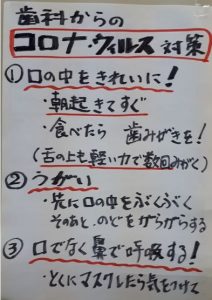 歯科からの
コロナ・ウィルス対策
① 口の中をきれいに!
・朝起きてすぐ
・食べたら 歯みがきを!
(舌の上も軽い力で数回みがく)
② うがい
・先に口の中をぶくぶく
そのあと、のどをがらがらする
③ 口でなく鼻で呼吸する!
・とくにマスクしたら気をつけて